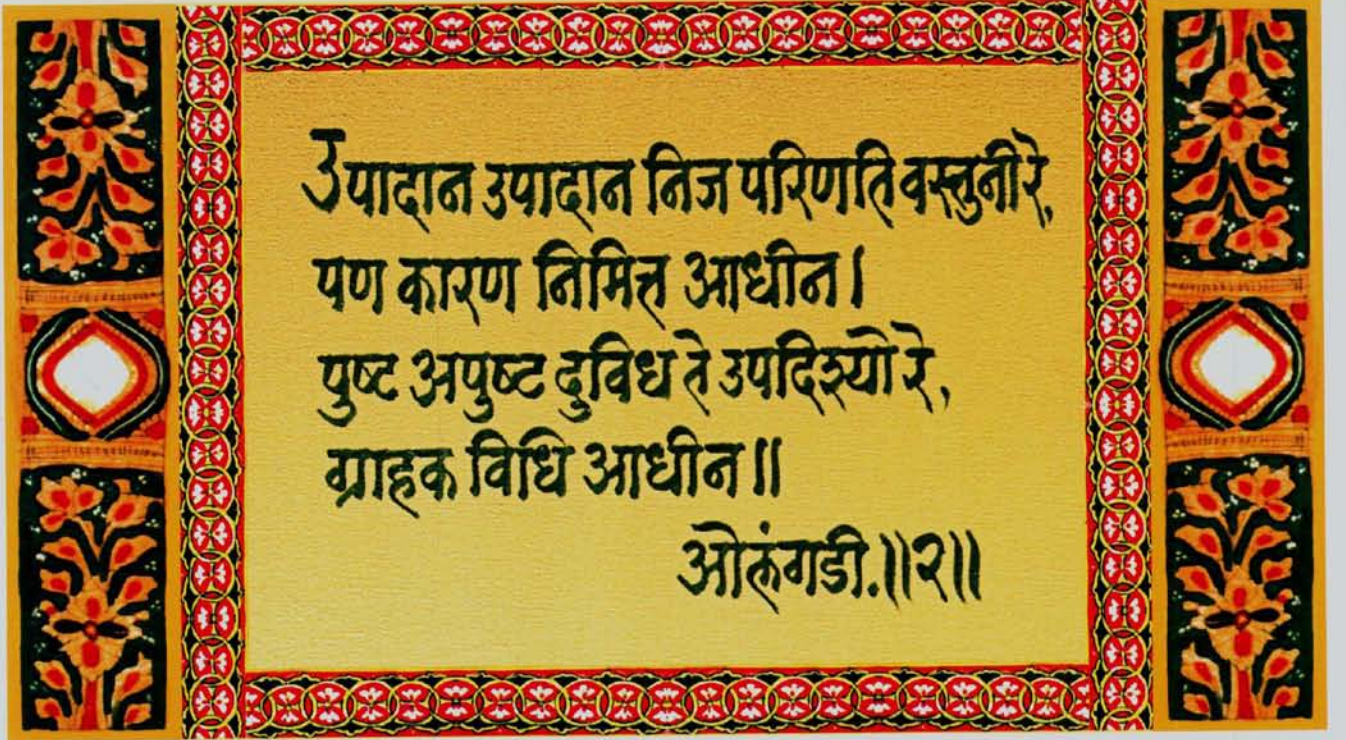 उपादान उपादान निज परिणति वस्तुनी रे,
पण कारण निमित्त आधीन।
पुष्ट अपुष्ट दुविध ते उपदिश्यो रे,
ग्राहक विधि आधीन॥
ओलंगडी.॥२॥